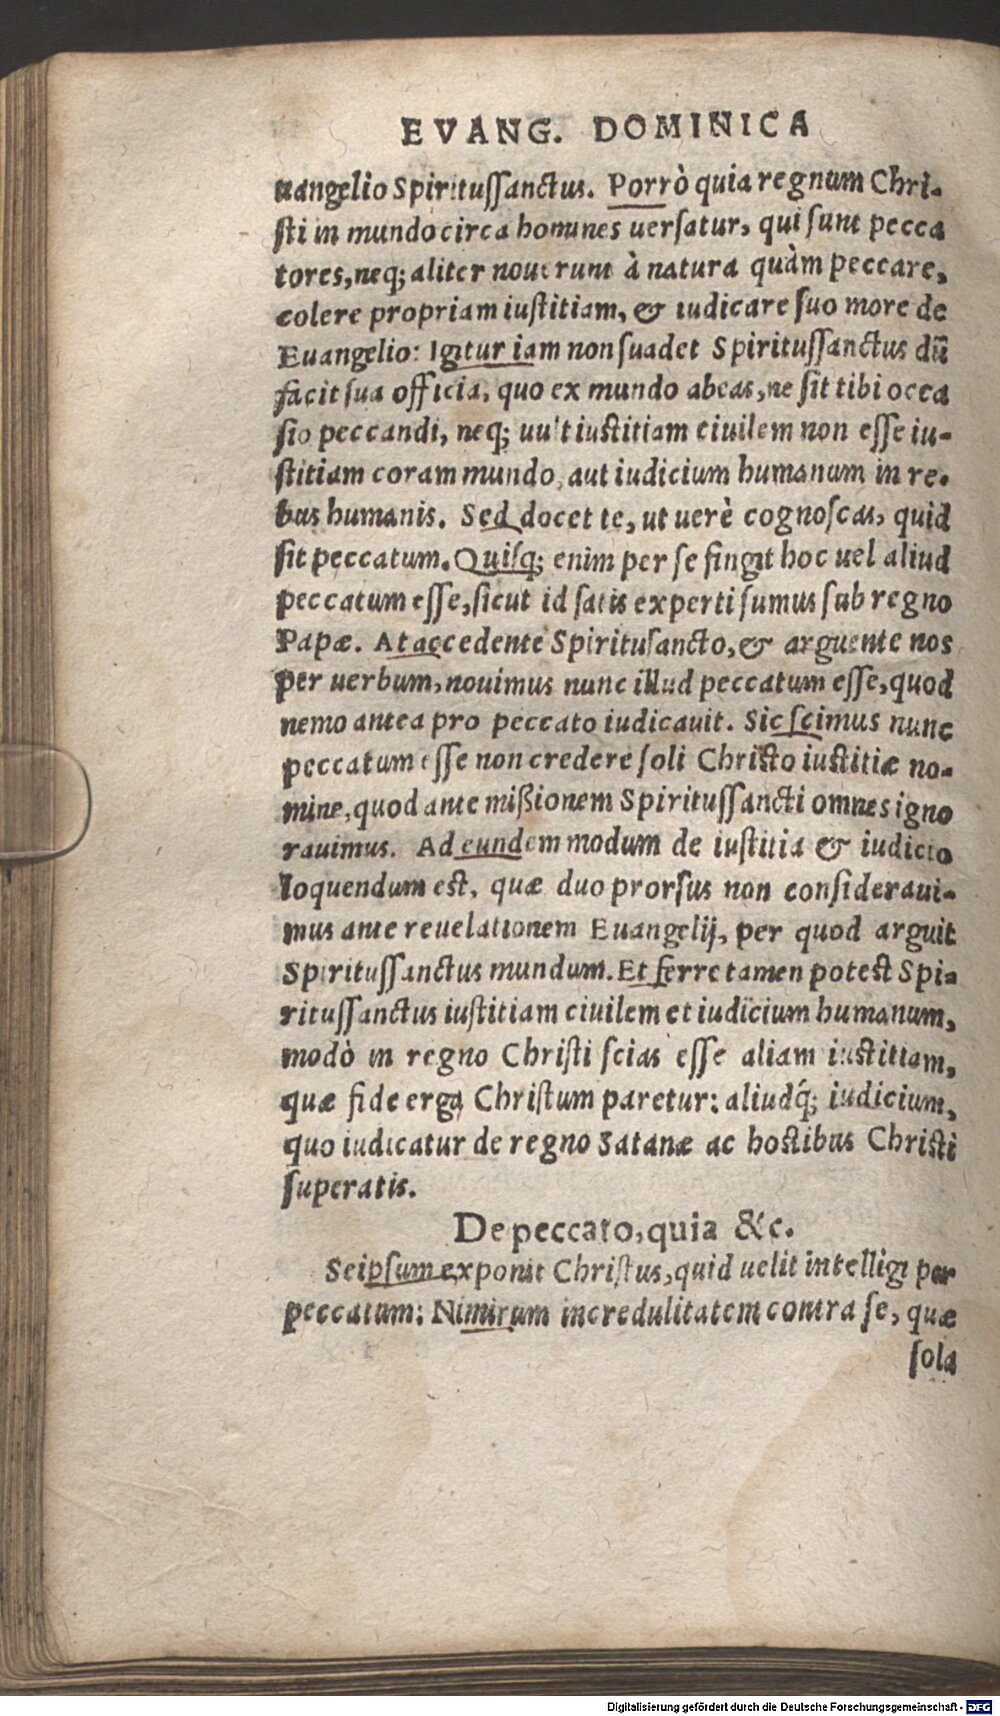 EVANG. DOMINICA
uangelio Spiritussanctus. Porrò quia regnum Chri-
sti in mundo circa homines uersatur, qui sunt pecca
tores, neq; aliter nouerunt à natura quàm peccare,
colere propriam iustitiam, & iudicare suo more de
Euangelio: Igitur iam non suadet Spiritussanctus dū
facit sua officia, quo ex mundo abeas, ne sit tibi occa
sio peccandi, neq; uult iustitiam ciuilem non esse iu-
stitiam coram mundo, aut iudicium humanum in re-
bus humanis. Sed docet te, ut uerè cognoscas, quid
sit peccatum. Quisq; enim per se fingit hoc uel aliud
peccatum esse, sicut id satis experti sumus sub regno
Papæ. At accedente Spiritusancto, & arguente nos
per uerbum, nouimus nunc illud peccatum esse, quod
nemo antea pro peccato iudicauit. Sic scimus nunc
peccatum esse non credere soli Christo iustitiæ no-
mine, quod ante mißionem Spiritussancti omnes igno
rauimus. Ad eundem modum de iustitia & iudicio
loquendum est, quæ duo prorsus non consideraui-
mus ante reuelationem Euangelij, per quod arguit
Spiritussanctus mundum. Et ferre tamen potest Spi-
ritussanctus iustitiam ciuilem et iudicium humanum,
modò in regno Christi scias esse aliam iustitiam,
quæ fide erga Christum paretur: aliudq́; iudicium,
quo iudicatur de regno Satanæ ac hostibus Christi
superatis.
De peccato, quia &c.
Seipsum exponit Christus, quid uelit intelligi per
peccatum: Nimirum incredulitatem contra se, quæ
sola
Digitalisierung gefördert durch die Deutsche Forschungsgemeinschaft - DFG